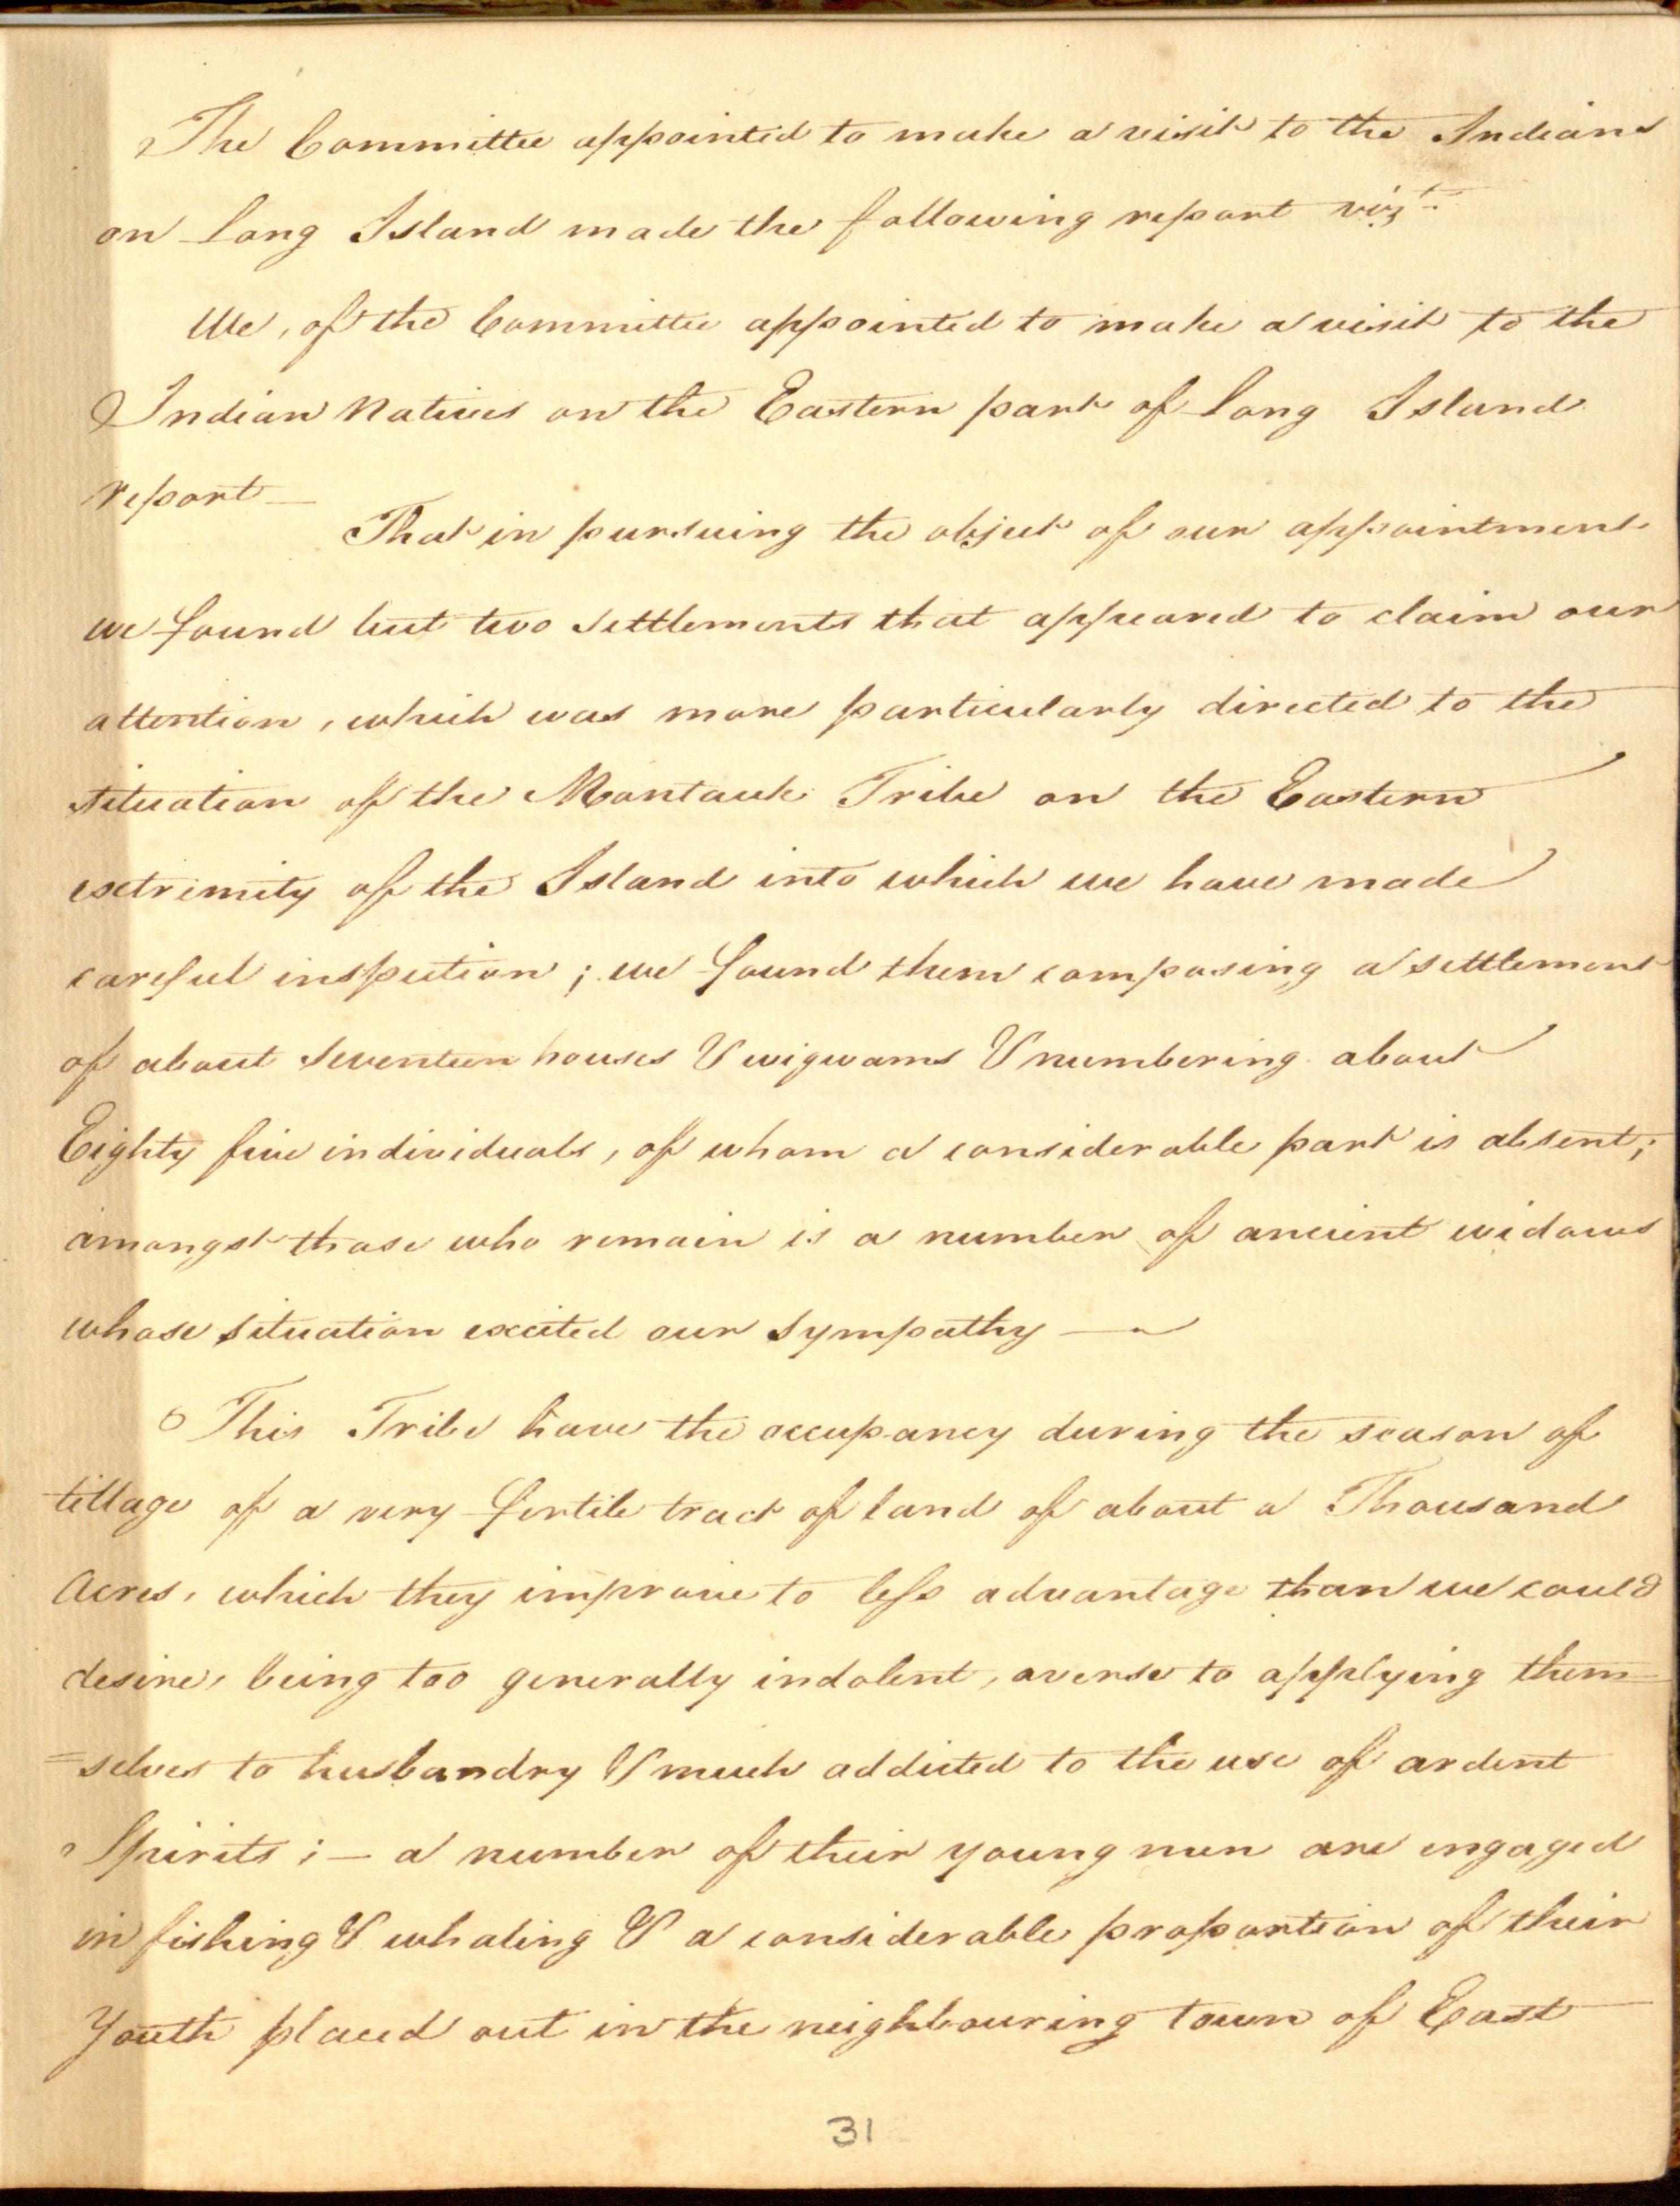 The Committee appointed to make a visit to the Indians
on Long Island made the following report vizt.
We, of the Committee appointed to make a visit to the
Indian Natives on the Eastern part of Long Island
report—
That in pursuing the object of our appointment
we found but two settlements that appeared to claim our
attention, which was more particularly directed to the
situation of the Montauk Tribe on the Eastern
extrimity of the Island into which we have made
careful inspection; we found them composing a settlement
of about Seventeen houses & wigwams & numbering about
Eighty five individuals, of whom a considerable part is absent;
amongst those who remain is a number of ancient widows
whose situation excited our sympathy —
This Tribe have the occupancy during the season of
tillage of a very fertile tract of land of about a Thousand
Acres, which they improve to less advantage than we could
desire, being too generally indolent, averse to applying them-
=selves to husbandry & much addicted to the use of ardent
Spirits; — a number of their young men are engaged
in fishing & whaling & a considerable proportion of their
Youth placed out in the neighbouring town of East
31